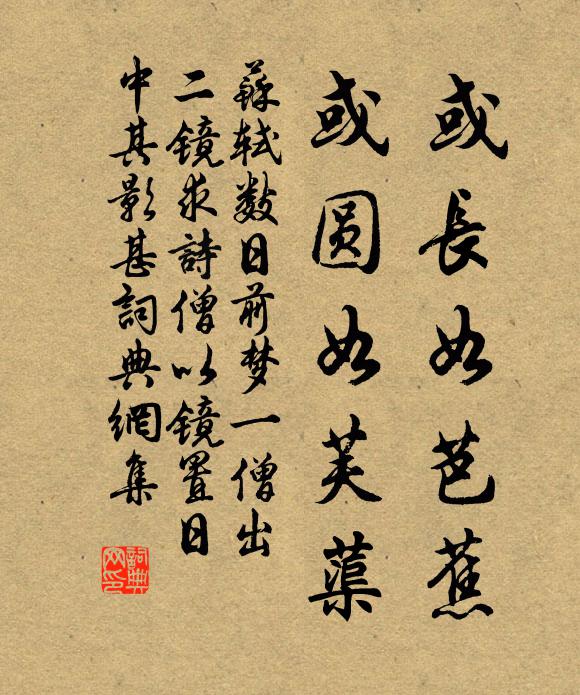 或長如芭蕉
或圓如芙蕖
蘇軾数日前梦一僧出
二镜求詩僧以镜置日
中其影甚詞典網集
詞典网印